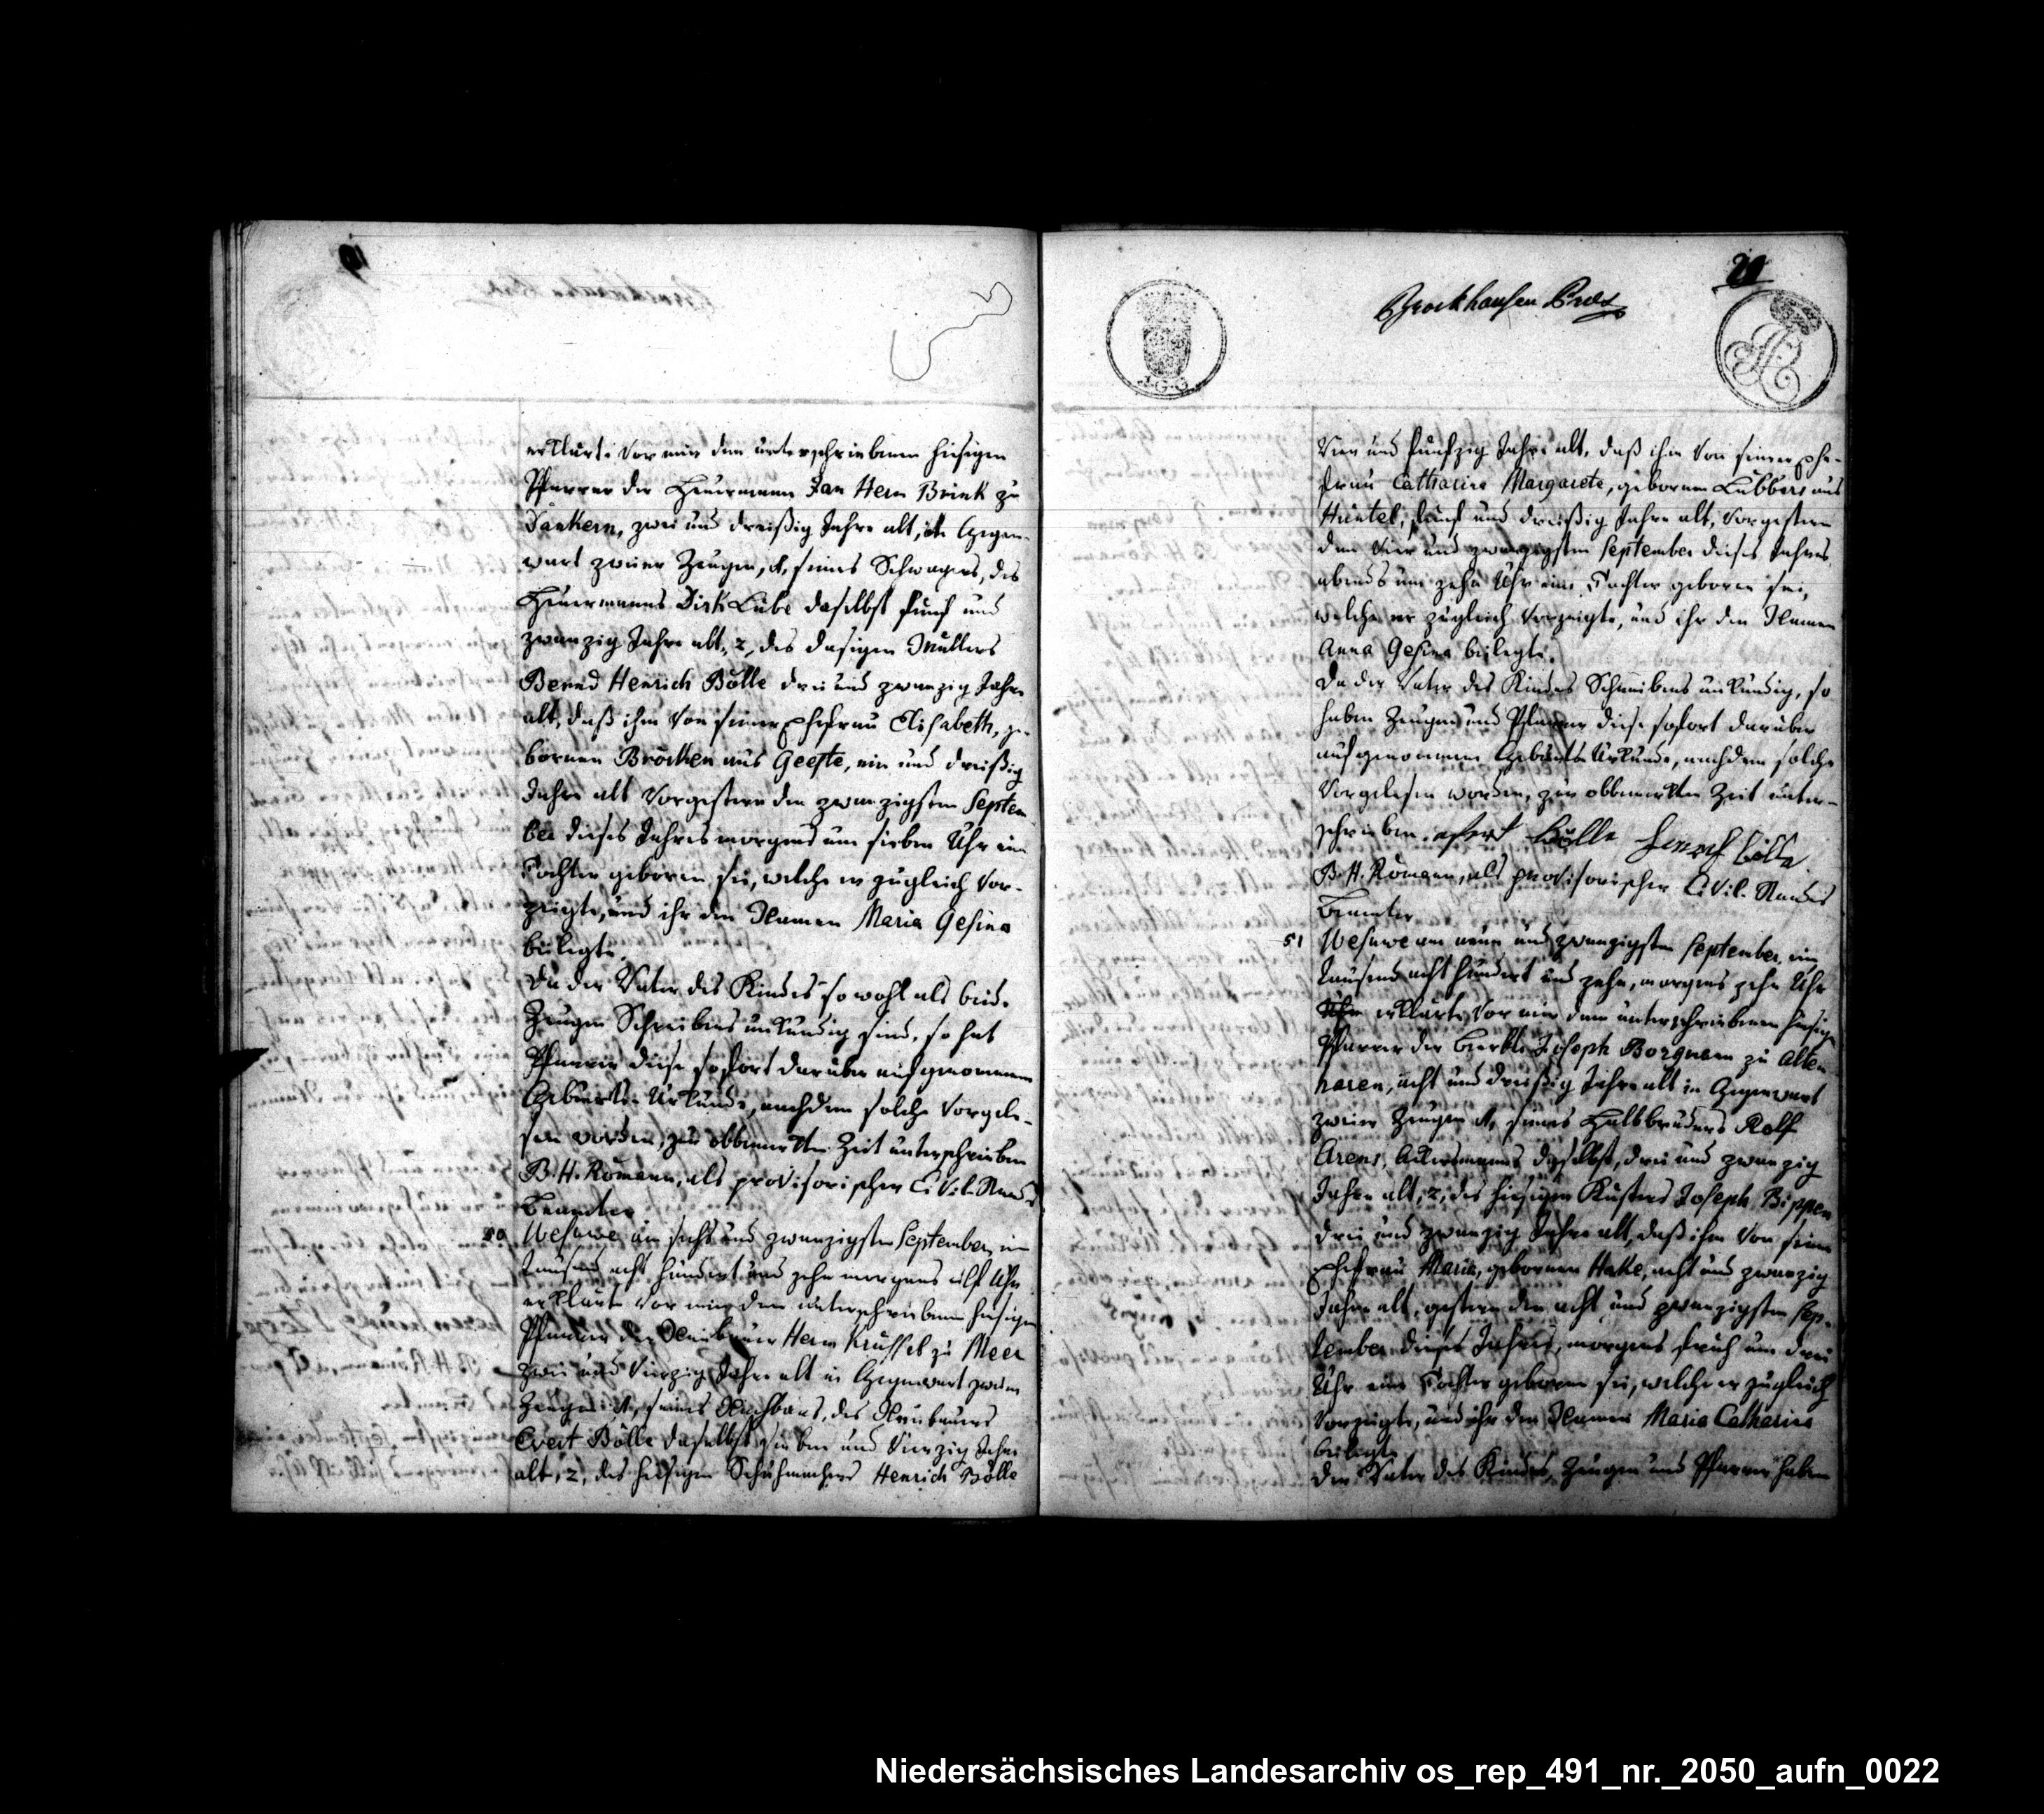 erklärte vor mir dem unterschriebenen hiesigen
Pfarrer der Heuermann Jan Herm Brink zu
Dankern, zwei und dreißig Jahre alt, in Gegen-
wart zweier Zeugen, 1, seines Schwagers, des
Heuermanns Dirk Lübe daselbst fünf und
zwanzig Jahre alt, 2, des dasigen Müllers
Bernd Henrich Bölle drei und zwanzig Jahre
alt, daß ihm von seiner Ehefrau Elisabeth, ge-
bornen Bröcken aus Geeste, ein und dreißig
Jahre alt vorgestern den zwanzigsten Septem
ber dieses Jahres morgens um sieben Uhr eine
Tochter geboren sei, welche er zugleich vor-
zeigte, und ihr den Namen Maria Gesina
beilegte.
Da der Vater des Kindes sowohl als beide
Zeugen Schreibens unkundig sind, so hat
Pfarrer diese sofort darüber aufgenommene
Geburts-Urkunde, nachdem solche vorgele-
sen worden, zur obbemerkten Zeit unterschrieben
B. H. Römann, als provisorischer Civil-Stands
Beamter
50 Wesuwe am sechs und zwanzigsten September, ein
tausend acht hundert und zehn morgens elf Uhr
erklärte vor mir dem unterschriebenen hiesigen
Pfarrer der Neubauer Herm Krüssel zu Meer
zwei und vierzig Jahre alt in Gegenwart zweier
Zeugen, 1, seines Nachbars, des Neubauers
Evert Bölle daselbst sieben und vierzig Jahre
alt, 2, des hiesigen Schuhmachers Henrich Bölle
20
Brockhausen Praes
vier und fünfzig Jahre alt, daß ihm von seiner Ehe-
frau Catharina Margarete, gebornen Lübbers aus
Hüntel, fünf und dreißig Jahre alt, vorgestern
den vier und zwanzigsten September dieses Jahres
abends um zehn Uhr eine Tochter geboren sei,
welche er zugleich vorzeigte, und ihr den Namen
Anna Gesina beilegte.
Da der Vater des Kindes Schreibens unkundig, so
haben Zeugen und Pfarrer diese sofort darüber
aufgenommene Geburts Urkunde, nachdem solche
vorgelesen worden, zur obbemerkten Zeit unter-
schrieben. efert bölle Henrich bölle
B. H. Römann, als provisorischer Civil-Stands
Beamter
51 Wesuwe am neun und zwanzigsten September, ein
tausend acht hundert und zehn, morgens zehn Uhr
Uhr erklärte vor mir dem unterschriebenen hiesigen
Pfarrer der Joseph Borgmann zu Alten
haren, acht und dreißig Jahre alt in Gegenwart
zweier Zeugen 1, seines Halbbruders Rolf
Arens, Ackersmanns daselbst, drei und zwanzig
Jahre alt, 2, des hiesigen Küsters Joseph Bippen
drei und zwanzig Jahre alt, daß ihm von seiner
Ehefrau Maria, gebornen Hake, acht und zwanzig
Jahre alt, gestern den acht und zwanzigsten Sep-
tember dieses Jahres, morgens früh um drei
Uhr eine Tochter geboren sei, welche er zugleich
vorzeigte, und ihr den Namen Maria Catharina
beilegte
Der Vater des Kindes, Zeugen und Pfarrer haben
Niedersächsisches Landesarchiv os_rep_491_nr._2050_aufn_0022